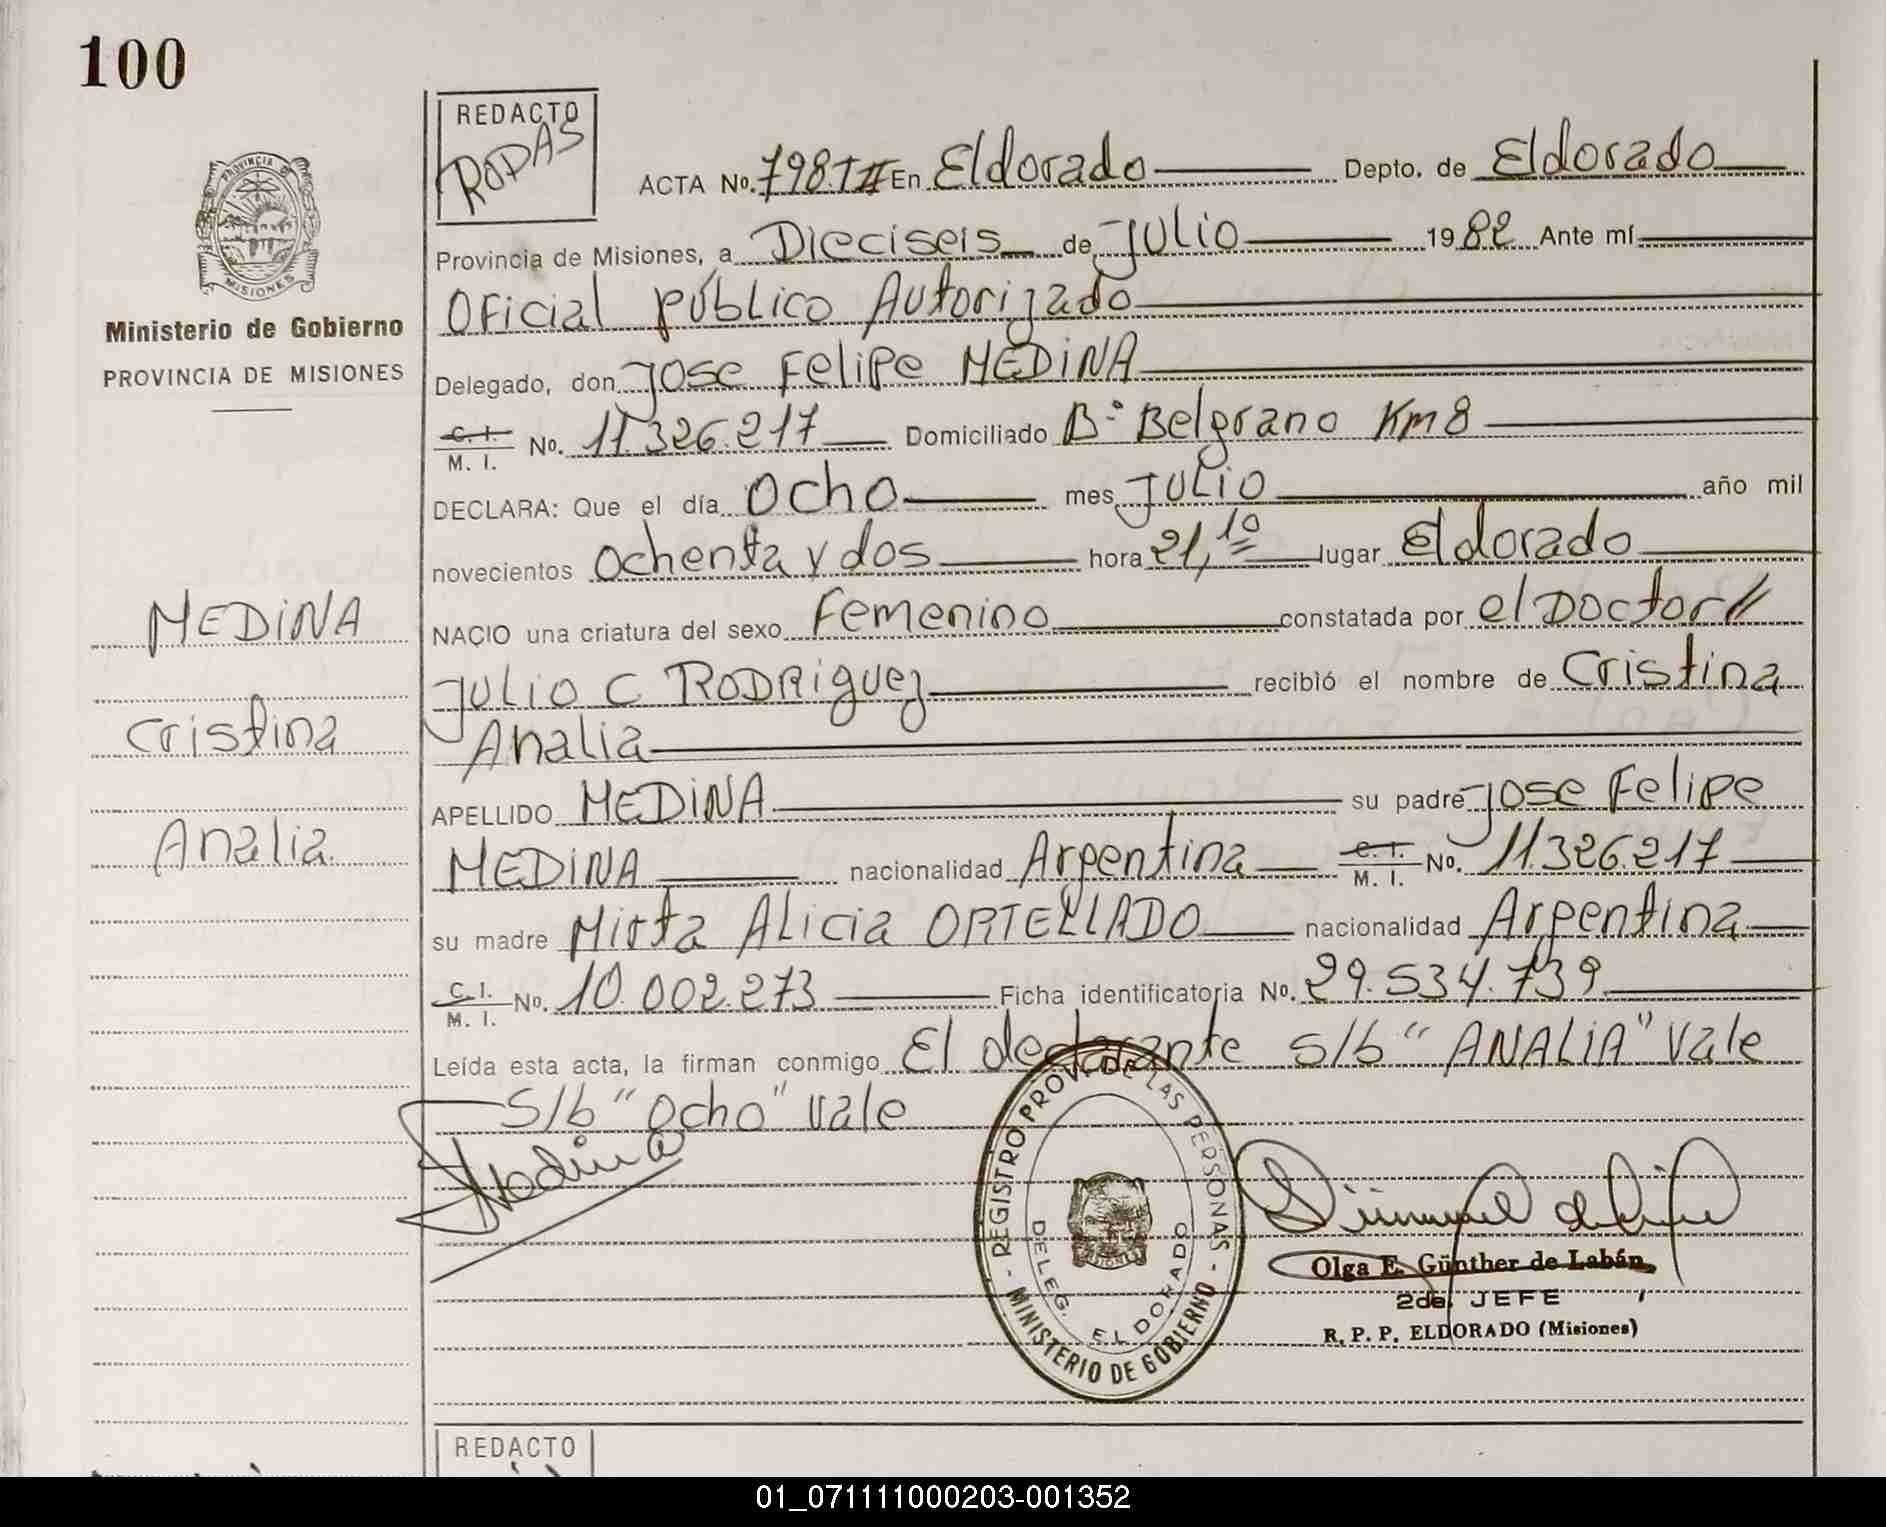 100
REDACTO
RODAS
PROVINCIA
MISIONES
Ministerio de Gobierno
PROVINCIA DE MISIONES
ACTA No. 798.T II En Eldorado Depto. de Eldorado
Provincia de Misiones, a Dieciseis de Julio 1982 Ante mí
Oficial público Autorizado
Delegado, don Jose Felipe MEDINA
C. I. / M. I. No. 11.326.217 Domiciliado B° Belgrano Km 8
DECLARA: Que el día Ocho mes Julio año mil
novecientos ochenta y dos hora 21,10 lugar Eldorado
NACIO una criatura del sexo Femenino constatada por el Doctor //
Julio C RODRIguez recibió el nombre de Cristina
Analia
APELLIDO MEDINA su padre Jose Felipe
MEDINA nacionalidad Argentina C. I. / M. I. No. 11.326.217
su madre Mirta Alicia ORTELLADO nacionalidad Argentina
C. I. / M. I. No. 10.002.273 Ficha identificatoria No. 29.534.739
Leída esta acta, la firman conmigo El declarante s/b "ANALIA" Vale
S/b "Ocho" Vale
MEDINA
Cristina
Analia
Medina
REGISTRO PROV. DE LAS PERSONAS - MINISTERIO DE GOBIERNO -
DELEG. ELDORADO
Olga E. Günther de Labán
2da. JEFE
R. P. P. ELDORADO (Misiones)
REDACTO
01_071111000203-001352